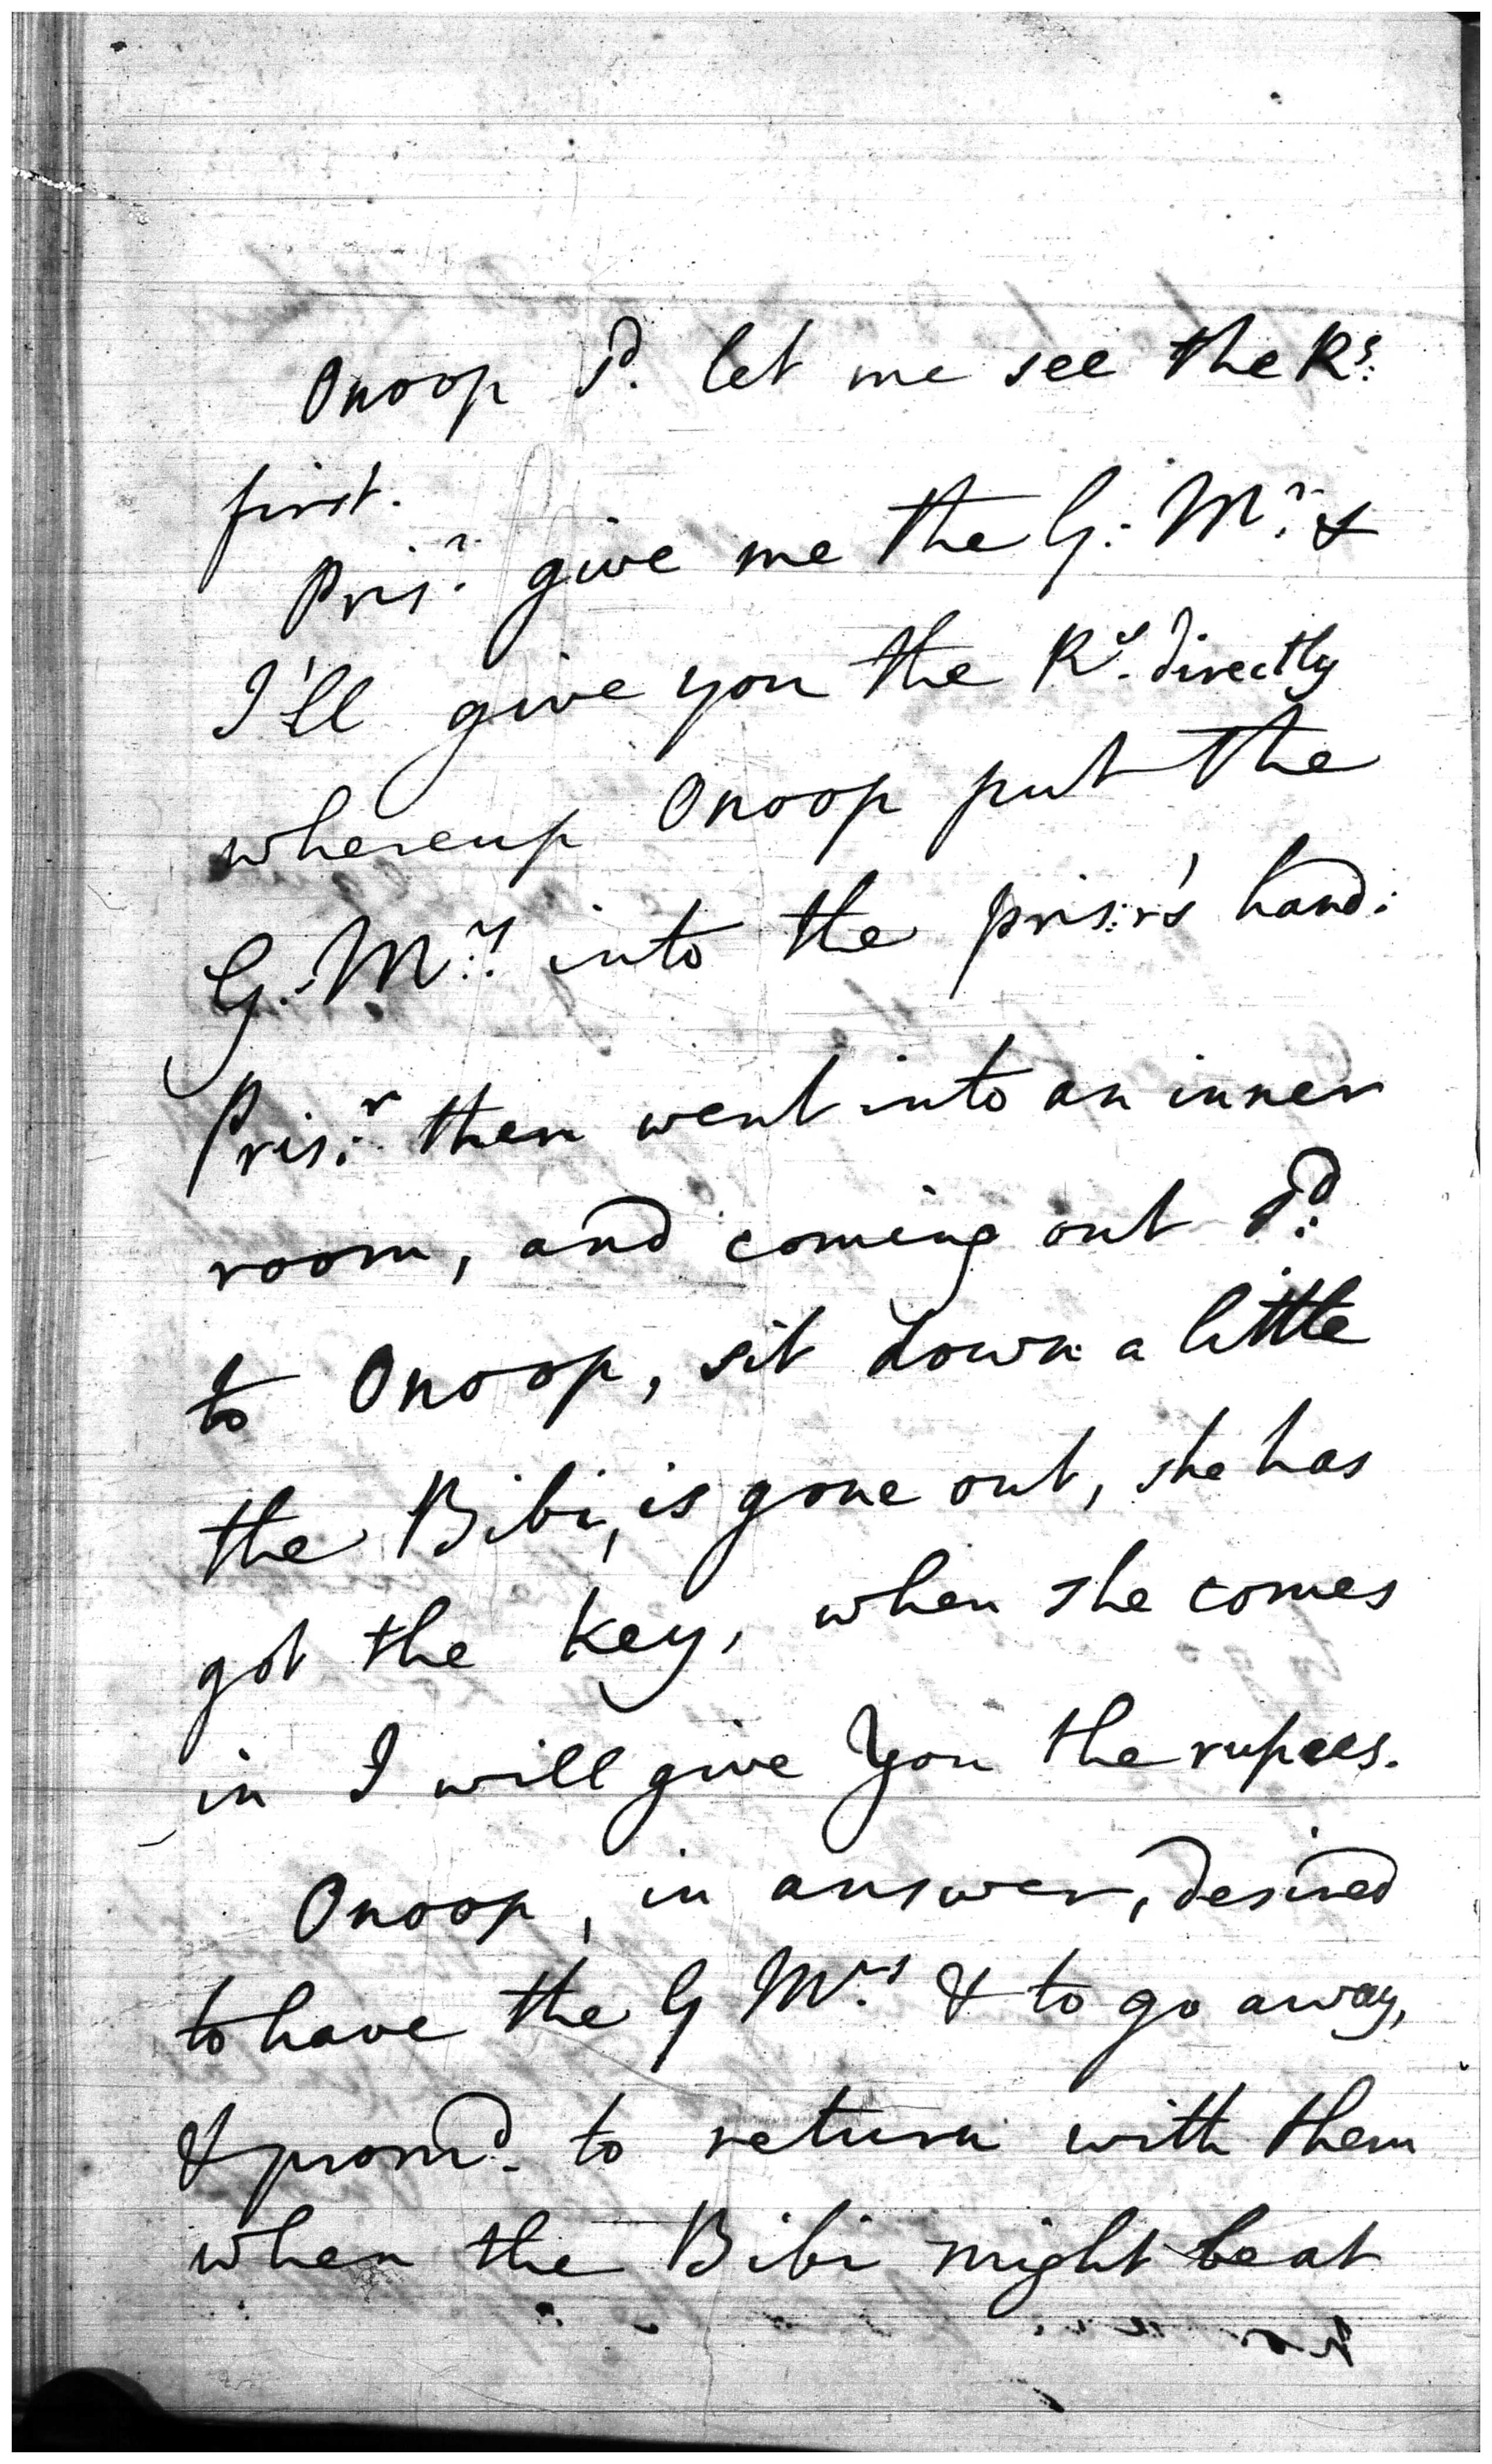 Onoop Sd. let me see the Rs:
first.
Prisr. give me the G: Mr. &
I'll give you the Rs. directly
whereup Onoop put the
G. Mrs: into the pris:r's hand:
Pris:r then went into an inner
room, and coming out Sd:
to Onoop, sit down a little
the Bibi, is gone out, she has
got the key, when she comes
in I will give You the rupees.
Onoop, in answer, desired
to have the G Mrs. & to go away,
& promd. to return with them
when the Bibi might be at